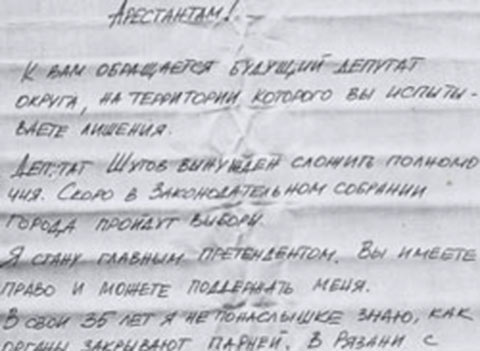 Арестантам!
К вам обращается будущий депутат
округа, на территории которого вы испыты-
ваете лишения.
Депутат Шутов вынужден сложить полномо
чия. Скоро в Законодательном собрании
города пройдут выборы.
Я стану главным претендентом. Вы имеете
право и можете поддержать меня.
В свои 35 лет я не понаслышке знаю, как
органы закрывают парней. В Рязани с